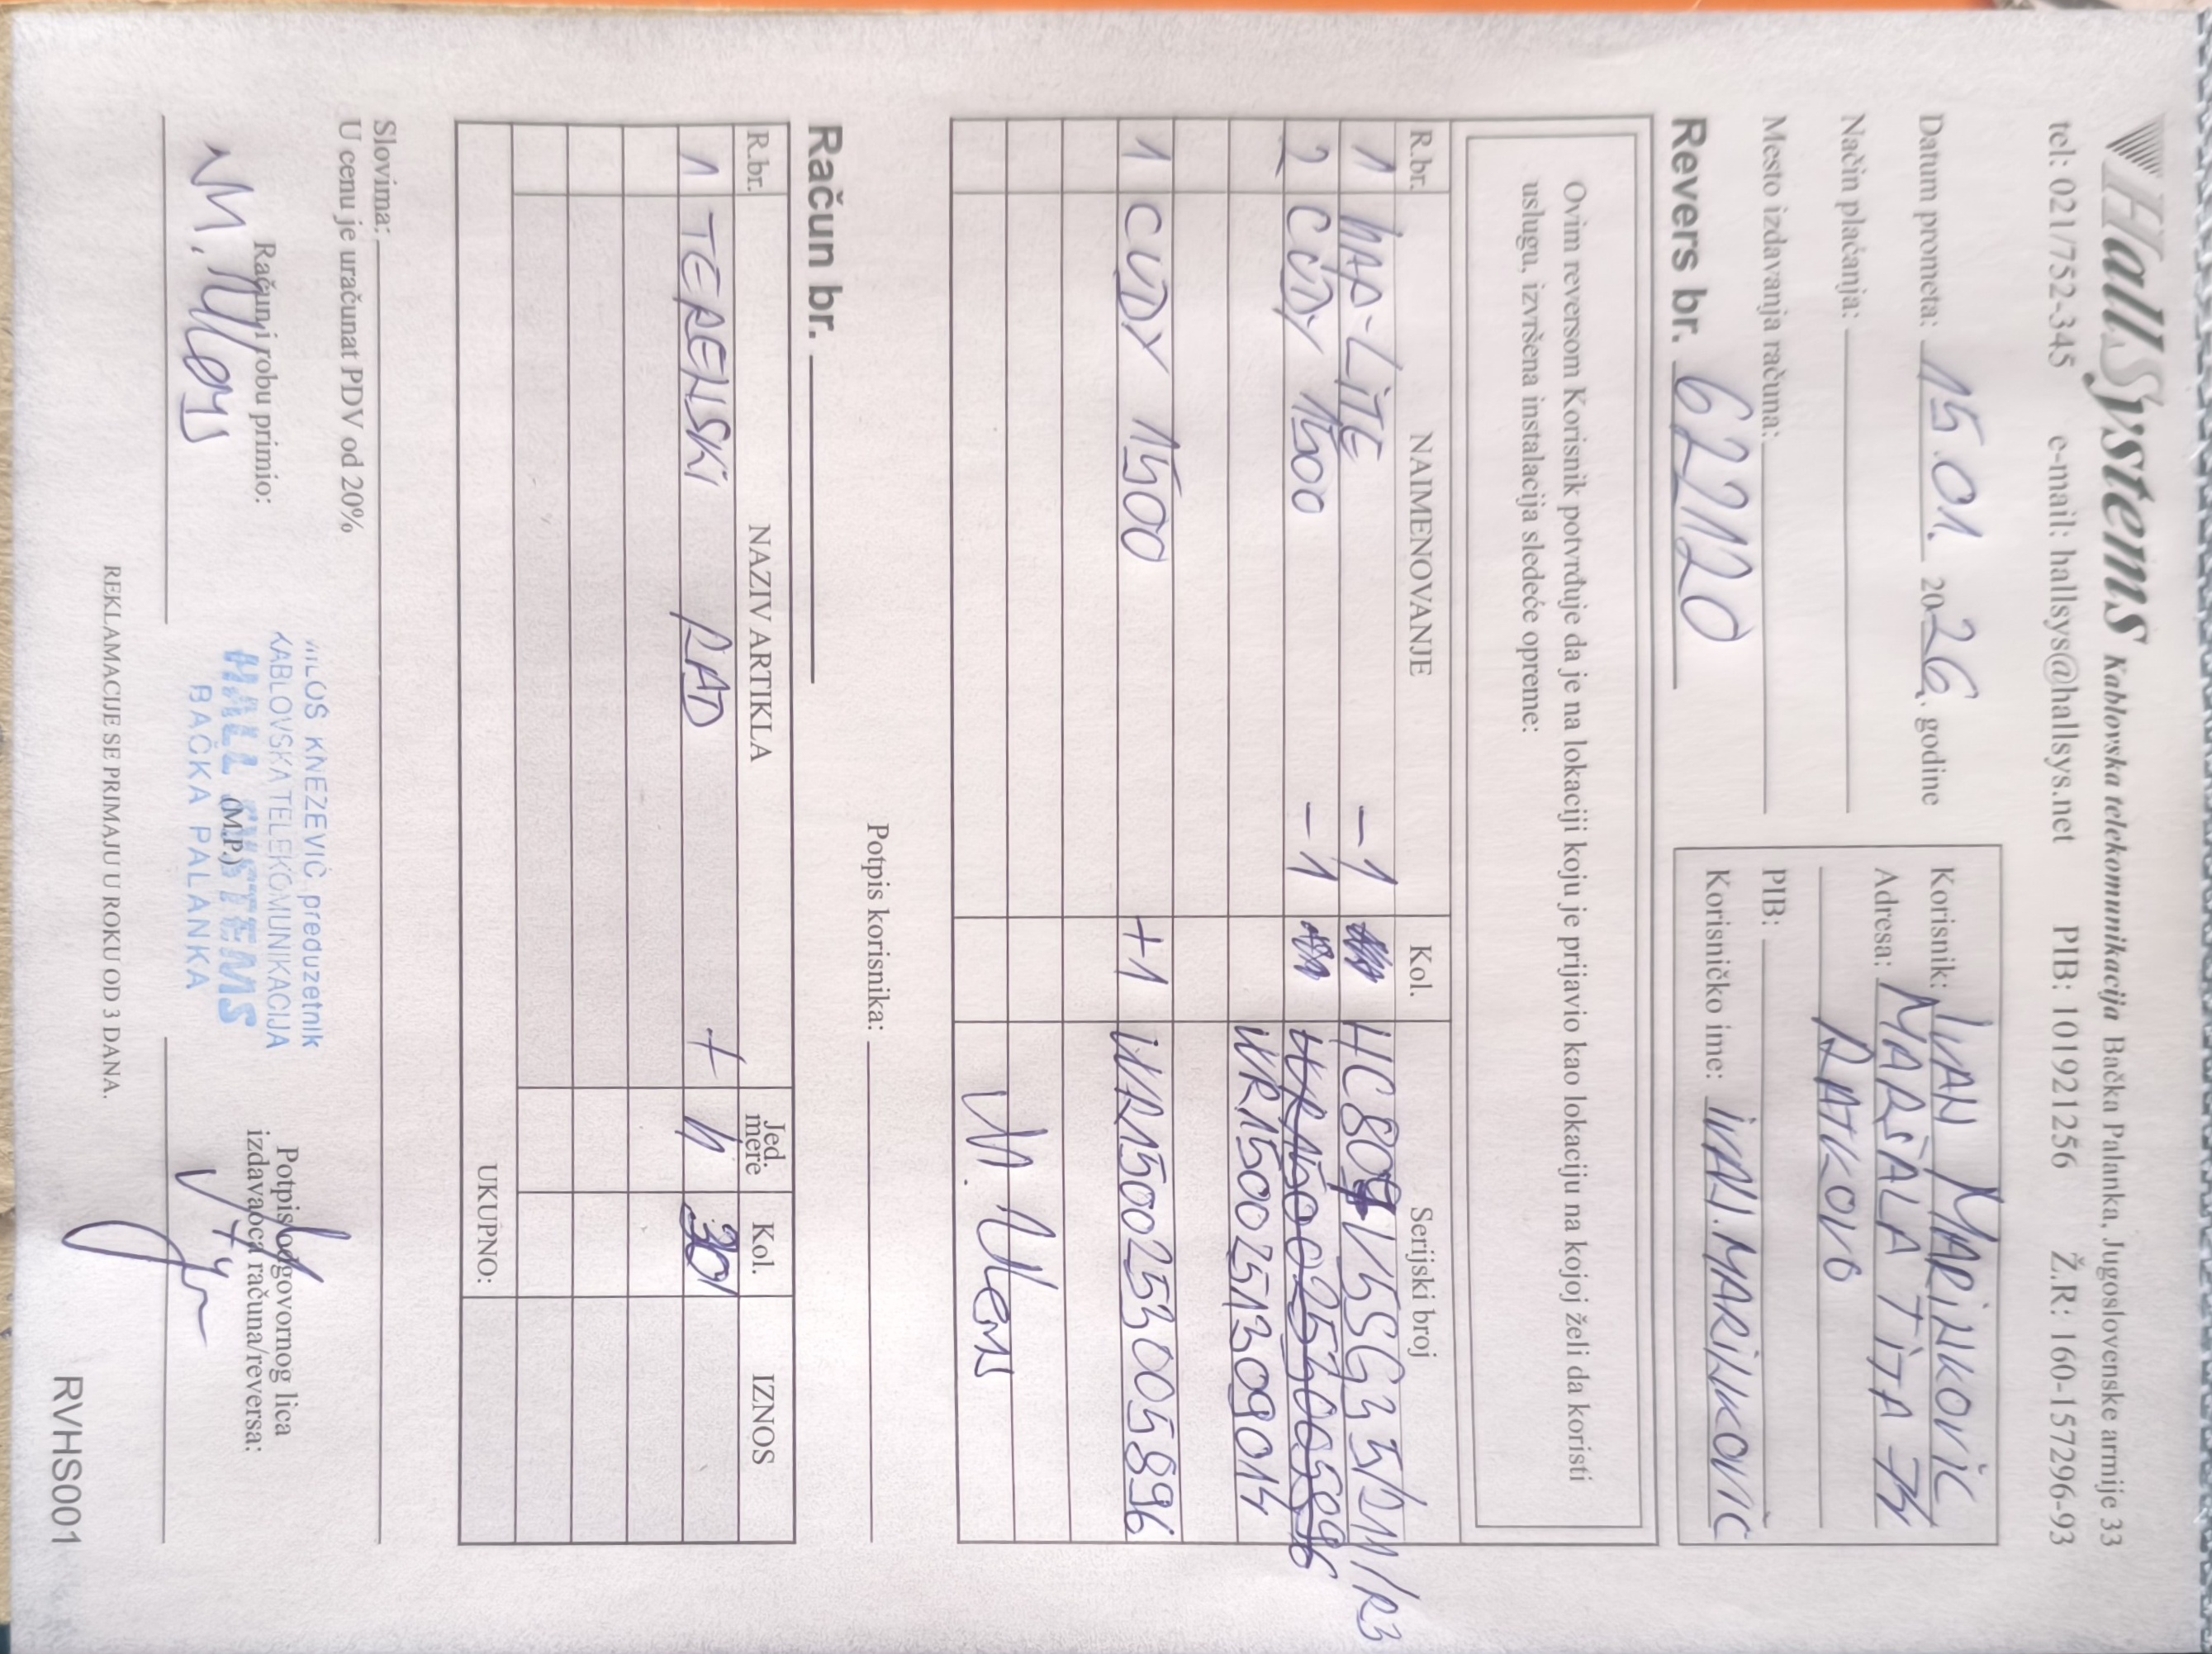 HallSystems Kablovska telekomunikacija Bačka Palanka, Jugoslovenske armije 33
tel: 021/752-345 e-mail: hallsys@hallsys.net PIB: 101921256 Ž.R: 160-157296-93
Datum prometa: 15.01. 2026. godine
Način plaćanja:
Mesto izdavanja računa:
Revers br. 622120
Korisnik: IVAN MARINKOVIĆ
Adresa: MARŠALA TITA 74
RATKOVO
PIB:
Korisničko ime: IVAN.MARINKOVIĆ
Ovim reversom Korisnik potvrđuje da je na lokaciji koju je prijavio kao lokaciju na kojoj želi da koristi
uslugu, izvršena instalacija sledeće opreme:
R.br. NAIMENOVANJE Kol. Serijski broj
1 hAP-LITE -1
2 CUDY 1500 -1 WR1500253005896
WR1500251309014
1 CUDY 1500 +1 WR1500253005896
Potpis korisnika:
Račun br.
R.br. NAZIV ARTIKLA Jed. mere Kol. IZNOS
1 TERENSKI RAD + h
UKUPNO:
Slovima:
U cenu je uračunat PDV od 20%
Račun i robu primio:
MILOŠ KNEŽEVIĆ preduzetnik
KABLOVSKA TELEKOMUNIKACIJA
HALL SYSTEMS
(M.P.)
BAČKA PALANKA
Potpis odgovornog lica
izdavaoca računa/reversa:
REKLAMACIJE SE PRIMAJU U ROKU OD 3 DANA.
RVHS001